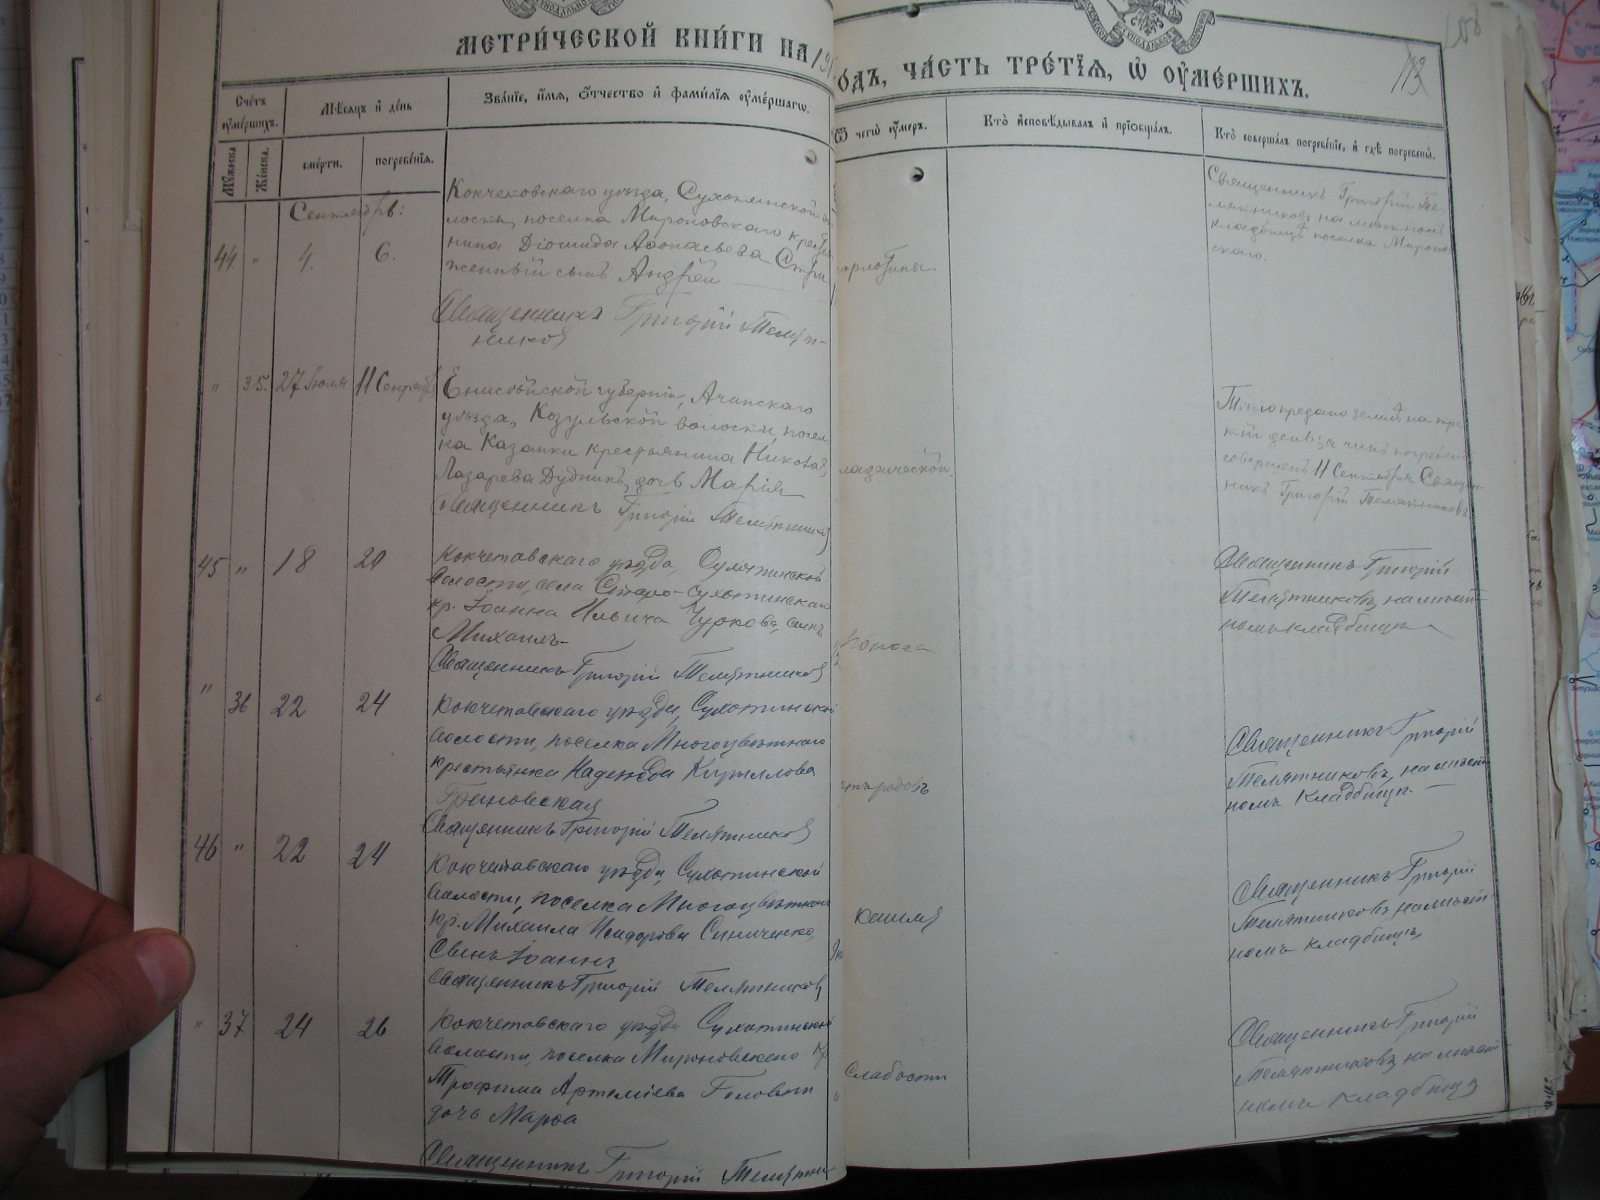 МЕТРИ́ЧЕСКОЙ КНИ́ГИ НА 19
ОДЪ, ЧА́СТЬ ТРЕ́ТІѦ, Ѡ ОУМЕ́РШИХЪ.
Сче́тъ оуме́ршихъ.
Мѣ́сѧцъ и де́нь
Зва́нїе, и́мѧ, ѻ́тчество и фами́лїѧ оуме́ршагѡ.
Ѿ чегѡ̀ оу́меръ.
Кто̀ и́сповѣ́дывалъ и прїобща́лъ.
Кто̀ соверша́лъ погребе́нїе, и гдѣ̀ погребены̀.
Му́жеска
Же́нска.
сме́рти.
погребе́нїѧ.
Сентябрь:
44 " 4. 6.
Кокчетовскаго уѣзда, Сухотинской
лости, поселка Мироновскаго
нина Діомида Аѳонасьева
женный сынъ Андрей
Священникъ Григорій Телят-
никовъ
Священникъ Григорій Те-
лятниковъ на мѣстномъ
кладбищѣ поселка Мироно-
скаго.
" 35. 27 Іюля 11 Сентября
Енисейской губерніи, Ачинскаго
уѣзда, Козульской волости, посел
ка Казанки крестьянина Николая
Лазарева Дудникъ, дочь Марія
Священникъ Григорій Телятниковъ
Тѣло предано землѣ на тре
тій день, а чинъ погребенія
совершенъ 11 Сентября Священ
никъ Григорій Телятниковъ
45 " 18 20
Кокчетавскаго уѣзда, Сухотинской
волости, села Старо-Сухотинскаго
кр. Іоанна Ильича Чуркова, сынъ
Михаилъ
Священникъ Григорій Телятниковъ
поноса
Священникъ Григорій
Телятниковъ, на мѣст-
номъ кладбищѣ
" 36 22 24
Кокчетавскаго уѣзда, Сухотинской
волости, поселка Многоцвѣтнаго
крестьянка Надежда Кириллова
Грановская
Священникъ Григорій Телятниковъ
родовъ
Священникъ Григорій
Телятниковъ, на мѣст
номъ кладбищѣ
46 " 22 24
Кокчетавскаго уѣзда, Сухотинской
волости, поселка Многоцвѣтнаго
кр. Михаила Исидорова Синиченко,
сынъ Іоаннъ
Священникъ Григорій Телятниковъ
кашля
Священникъ Григорій
Телятниковъ, на мѣст
номъ кладбищѣ,
" 37 24 26
Кокчетавскаго уѣзда Сухотинской
волости, поселка Мироновскаго кр
Трофима Артеміева
дочь Марѳа
Священникъ Григорій Телятни
слабости
Священникъ Григорій
Телятниковъ на мѣст
номъ кладбищѣ